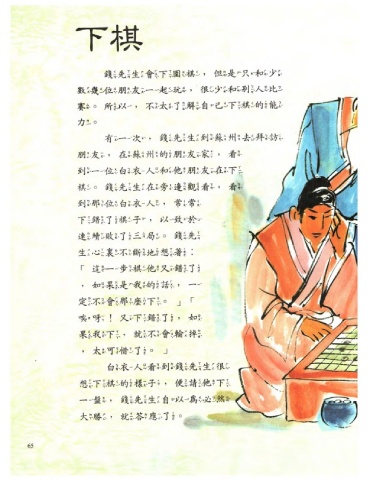 下棋
錢先生會下圍棋，但是只和少
數幾位朋友一起玩，很少和別人比
賽。所以，不太了解自己下棋的能
力。
有一次，錢先生到蘇州去拜訪
朋友，在蘇州的朋友家，看
到一位白衣人和他朋友在下
棋。錢先生在旁邊觀看，看
到那位白衣人，常常
下錯了棋子，以致於
連續敗了三局。錢先
生心裏不斷地想著：
「這一步棋他又錯了
，如果是我的話，一
定不會那麼下。」「
唉呀！又下錯了，如
果我下，就不會輸掉
，太可惜了。」
白衣人看到錢先生很
想下棋的樣子，便請他下
一盤，錢先生自以為必然
大勝，就答應了。
65